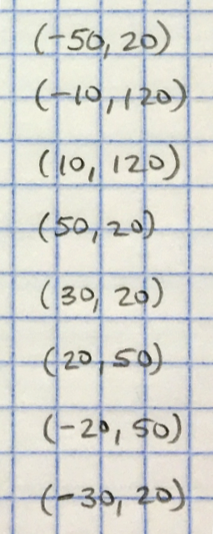 (-50, 20)
(-10, 120)
(10, 120)
(50, 20)
(30, 20)
(20, 50)
(-20, 50)
(-30, 20)